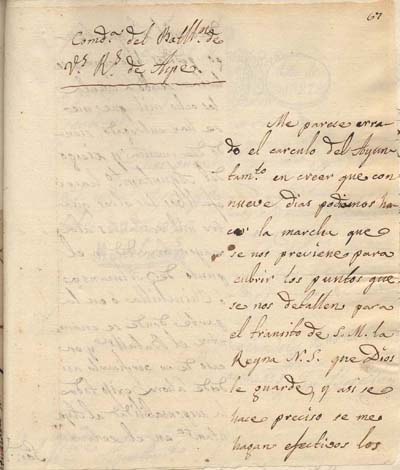 67
Comd.ª del Batll.ⁿ de
V.ˢ R.ˢ de Aspe.
Me parece erra-
do el carculo del Ayun-
tam.ᵗᵒ en creer que con
nueve dias podemos ha-
cer la marcha que
se nos previene para
cubrir los puntos que
se nos detallen para
el transito de S. M. la
Reyna N. S. que Dios
le guarde, y asi se
hace preciso se me
hagan efectivos los